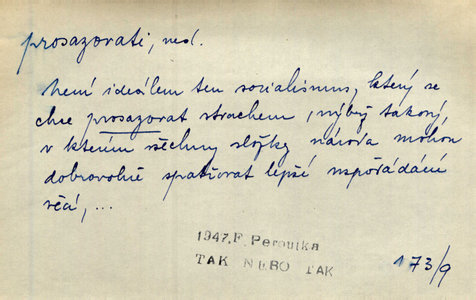 prosazovati, ned.
Není ideálem ten socialismus, který se
chce prosazovat strachem, nýbrž takový,
v kterém všechny složky národa mohou
dobrovolně spatřovat lepší uspořádání
věcí, ...
1947, F. Peroutka
TAK NEBO TAK
173/9